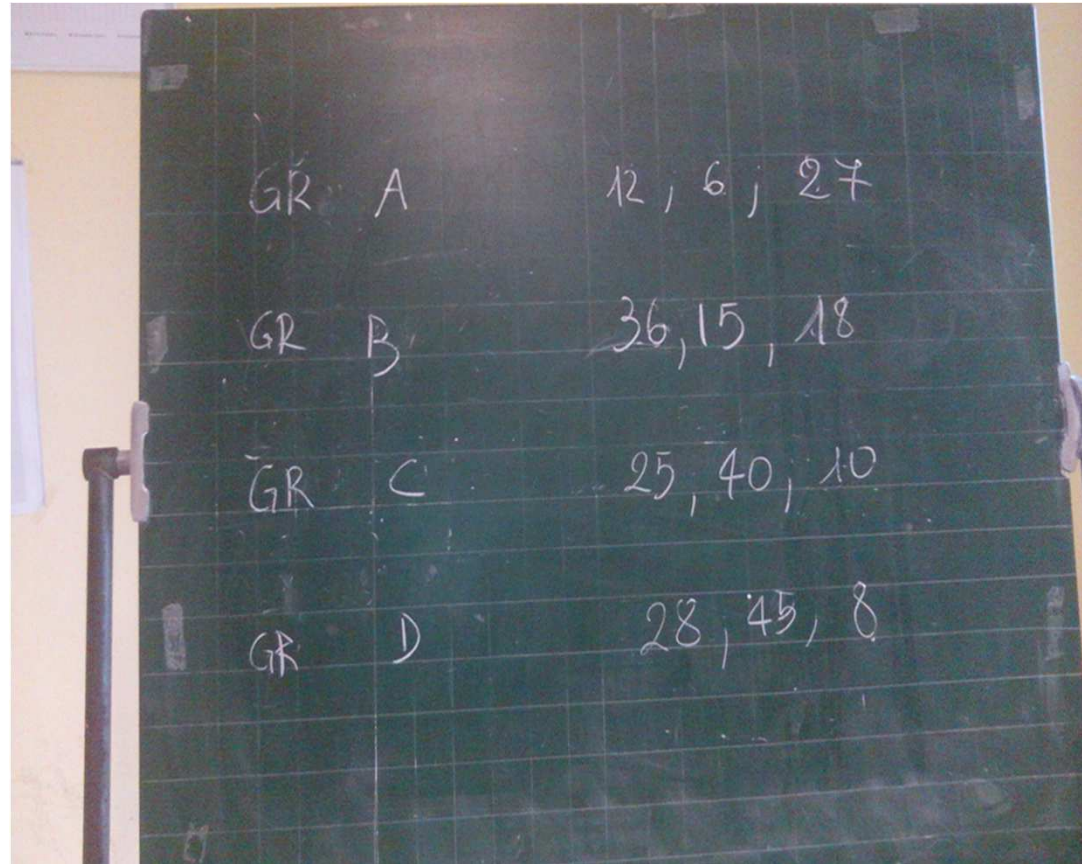 GR A 12, 6, 27
GR B 36, 15, 18
GR C 25, 40, 10
GR D 28, 45, 8